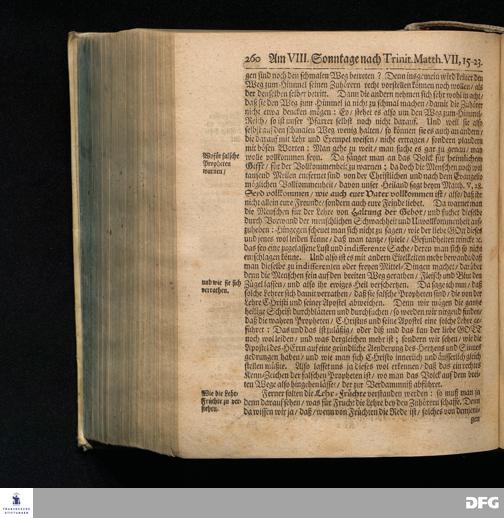 260 Am VIII. Sonntage nach Trinit. Matth. VII, 15-23.
gen sind noch den schmalen Weg betreten? Denn insgemein wird keiner den
Weg zum Himmel seinen Zuhörern recht vorstellen können noch wollen / als
der denselben selber betritt. Dann die andern nehmen sich sehr wohl in acht /
daß sie den Weg zum Himmel ja nicht zu schmal machen / damit die Zuhörer
nicht etwa dencken mögen: Es stehet es also um den Weg zum Himmel-
Reich / so ist unser Pfarrer selbst noch nicht darauf. Und weil sie also
selbst auf den schmalen Weg wenig halten / so können sie es auch an andern /
die darauf mit Lehr und Exempel weisen / nicht ertragen / sondern plaudern
mit bösen Worten: Man gehe zu weit / man suche es gar zu genau / man
Wofür falsche
Propheten
warnen /
wolle vollkommen seyn. Da fänget man an das Volck für heimlichem
Gifft / für der Vollkommenheit zu warnen; da doch die Menschen noch wol
tausend Meilen entfernet sind von der Christlichen und nach dem Evangelio
möglichen Vollkommenheit / davon unser Heiland sagt beym Matth. V, 28.
Seyd vollkommen / wie auch euer Vater vollkommen ist / also / daß ihr
nicht allein eure Freunde / sondern auch eure Feinde liebet. Da warnet man
die Menschen für der Lehre von Haltung der Gebot / und suchet dieselbe
durch Vorwand der menschlichen Schwachheit und Unvollkommenheit auf-
zuheben: Hingegen scheuet man sich nicht zu sagen / wie der liebe GOtt dieses
und jenes wol leiden könne / daß man tantze / spiele / Gesundheiten trincke &c.
das sey eine zugelassene Lust und indifferente Sache / deren man sich so nicht
entschlagen könne. Und also ist es mit andern Eitelkeiten mehr bewandt / daß
man dieselbe zu indifferenten oder freyen Mittel-Dingen machet / darüber
denn die Menschen fein auf den breiten Weg gerathen / Fleisch und Blut den
und wie sie sich
verrathen.
Zügel lassen / und also ihr ewiges Heil verschertzen. Da sage ich nun / daß
solche Lehrer sich damit verrathen / daß sie falsche Propheten sind / die von der
Lehre Christi und seiner Apostel abweichen. Denn wir mögen die gantze
heilige Schrifft durchblättern und durchsuchen / so werden wir nirgend finden /
daß die wahren Propheten / Christus und seine Apostel eine solche Lehre ge-
führet: Das und das ist zuläßig / oder diß und das kan der liebe GOTT
noch wol leiden / und was dergleichen mehr ist; sondern wir sehen / wie die
Apostel des HErrn auf eine gründliche Aenderung des Hertzens und Sinnes
gedrungen haben / und wie man sich Christo innerlich und äusserlich gleich
stellen müßte. Also lasset uns ja dieses wol erkennen / daß das ein rechtes
Kenn-Zeichen der falschen Propheten ist / wo man das Volck auf dem brei-
ten Wege also hingehen lässet / der zur Verdammniß abführet.
Wie die Lehr-
Früchte zu ver-
stehen.
Ferner sollen die Lehr-Früchte verstanden werden: so muß man ja
denn darauf sehen / was für Frucht die Lehre bey den Zuhörern schaffe. Denn
da wissen wir ja / daß / wenn von Früchten die Rede ist / solches von demjeni-
gen
FRANCKESCHE
STIFTUNGEN
DFG